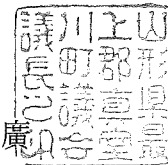 山形県最
上郡真室
川町議会
議長之印
廣